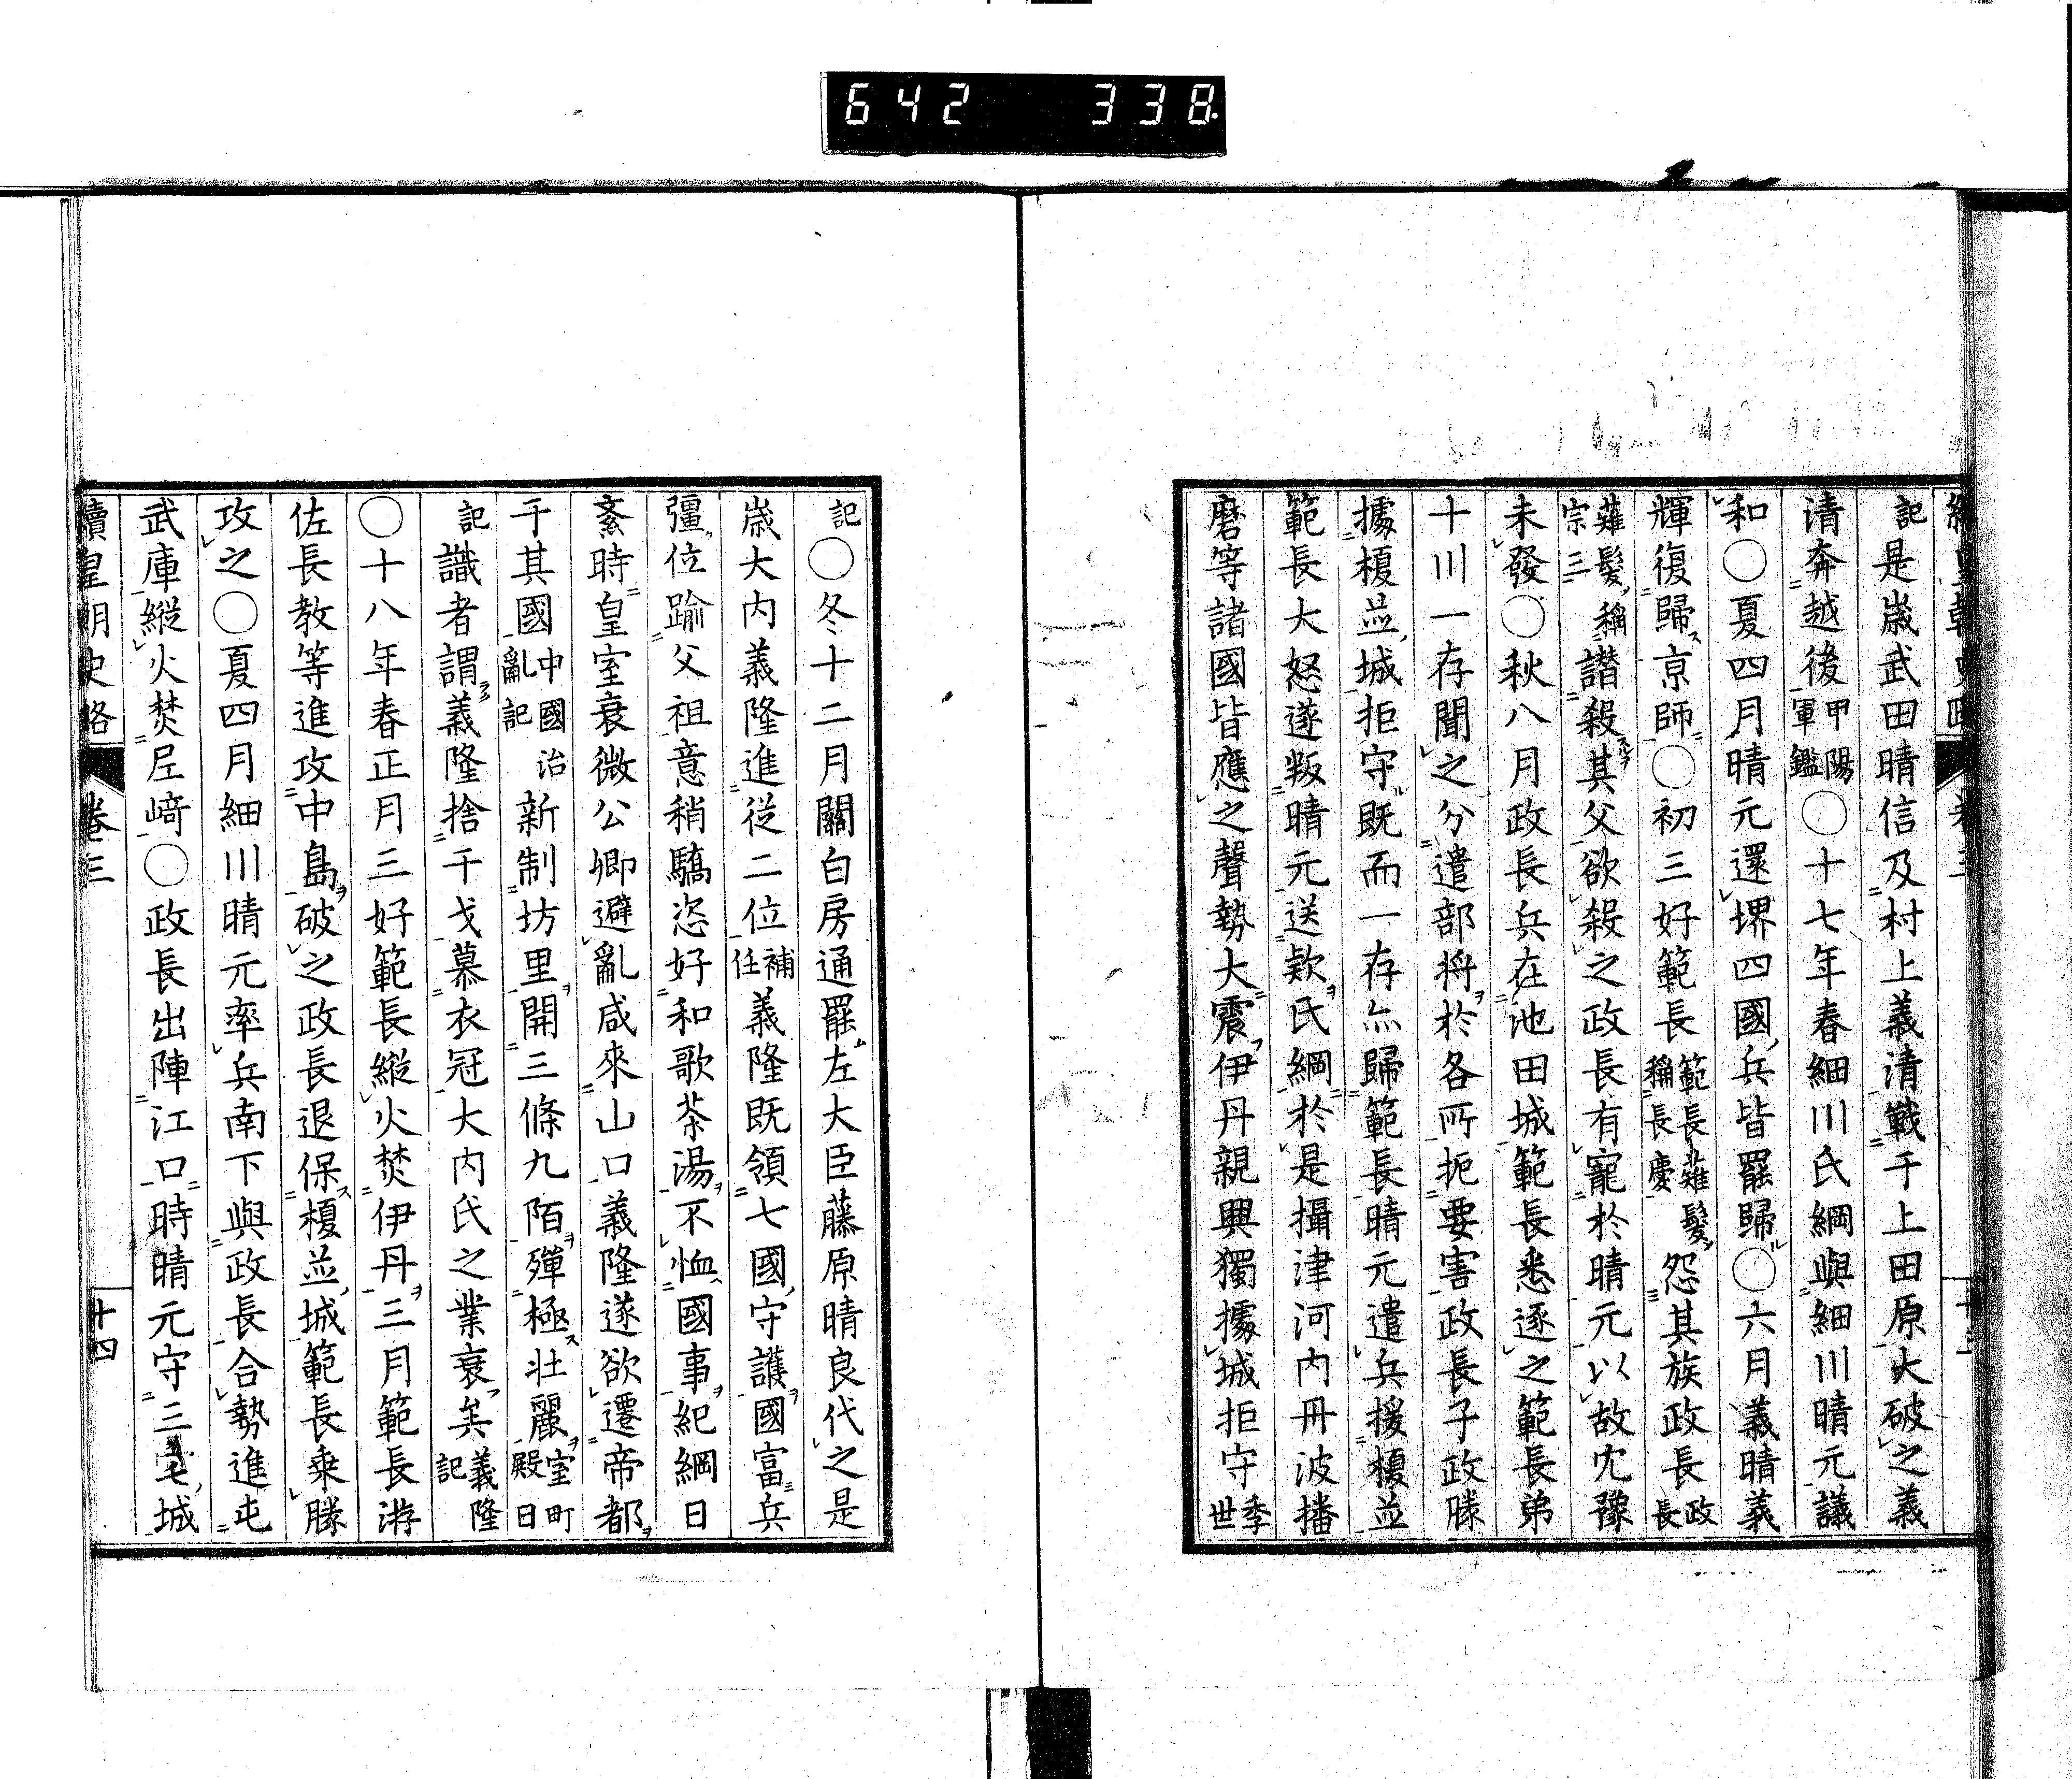 642 338
記是歳武田晴信及村上義清戰于上田原大破之義
清奔越後甲陽軍鑑〇十七年春細川氏綱與細川晴元議
和〇夏四月晴元還堺四國兵皆罷歸〇六月義晴義
輝復歸京師〇初三好範長範長薙髮稱長慶怨其族政長政長
薙髮稱宗三譖殺其父欲殺之政長有寵於晴元以故冘豫
未發〇秋八月政長兵在池田城範長悉逐之範長弟
十川一存聞之分遣部將於各所扼要害政長子政勝
據榎並城拒守既而一存亦歸範長晴元遣兵援榎並
範長大怒遂叛晴元送款氏綱於是攝津河内丹波播
磨等諸國皆應之聲勢大震伊丹親興獨據城拒守季世
記〇冬十二月關白房通罷左大臣藤原晴良代之是
歳大内義隆進從二位補任義隆既領七國守護國富兵
彊位踰父祖意稍驕恣好和歌茶湯不恤國事紀綱日
紊時皇室衰微公卿避亂咸來山口義隆遂欲遷帝都
于其國中國治亂記新制坊里開三條九陌殫極壯麗室町殿日
記識者謂義隆捨干戈慕衣冠大内氏之業衰矣義隆記
〇十八年春正月三好範長縱火焚伊丹三月範長游
佐長教等進攻中島破之政長退保榎並城範長乘勝
攻之〇夏四月細川晴元率兵南下與政長合勢進屯
武庫縱火焚尼﨑〇政長出陣江口時晴元守三宅城
續皇朝史略 卷三 十四